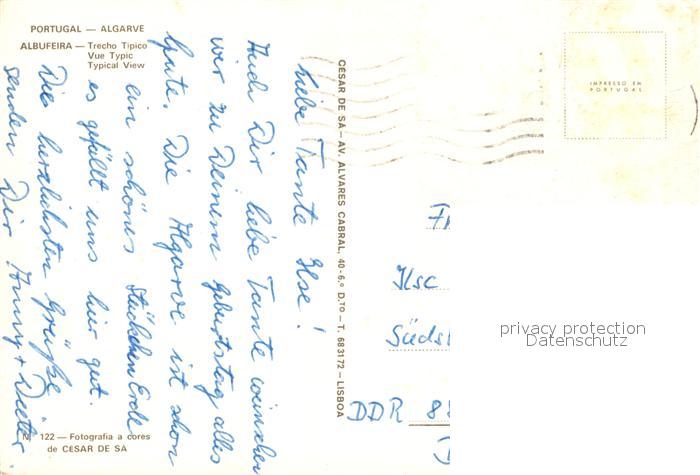 PORTUGAL — ALGARVE
ALBUFEIRA — Trecho Tipico
Vue Typic
Typical View
Liebe Tante Ilse!
Auch Dir liebe Tante wünschen
wir zu Deinem Geburtstag alles
Gute. Die Algarve ist schon
ein schönes Stückchen Erde
es gefällt uns hier gut.
Die herzlichsten Grüße
senden Dir Anny + Dieter
Nº 122 — Fotografia a cores
de CESAR DE SÁ
CÉSAR DE SÁ — AV. ALVARES CABRAL, 40-6.º D.TO — T. 683172 — LISBOA
IMPRESSO EM
PORTUGAL
Ilse
Südst
DDR 8
privacy protection
Datenschutz